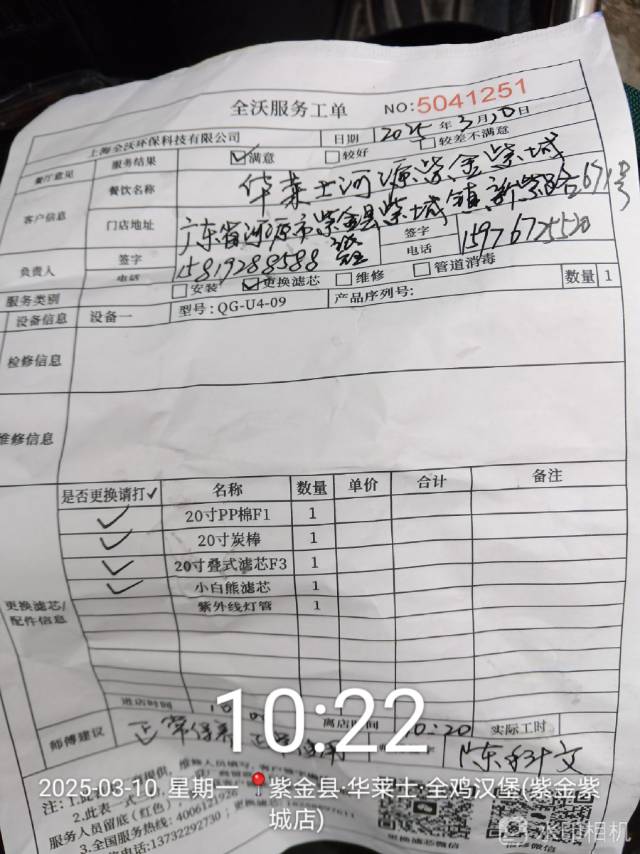 全沃服务工单
NO:5041251
上海全沃环保科技有限公司 日期 年3月10日
餐厅意见 服务结果 ☑满意 □较好 □较差不满意
客户信息 餐饮名称 华莱士河源紫金紫城
门店地址 广东省河源市紫金县紫城镇新紫路671号
负责人 签字 签字
电话 15819288588 电话 15976725520
服务类别 □安装 ☑更换滤芯 □维修 □管道消毒
设备信息 设备一 型号:QG-U4-09 产品序列号: 数量 1
检修信息
维修信息
更换滤芯/配件信息
是否更换请打✓ 名称 数量 单价 合计 备注
✓ 20寸PP棉F1 1
✓ 20寸炭棒 1
✓ 20寸叠式滤芯F3 1
✓ 小白熊滤芯 1
紫外线灯管 1
进店时间 离店时间 10:20 实际工时
师傅建议 正常保养 正常使用
10:22
2025-03-10 星期一 紫金县·华莱士·全鸡汉堡(紫金紫
城店)
注:1.
2.此表一式
服务人员留底(红色)
3.全国服务热线:
电话:13732292730
更换滤芯微信
维修微信
水印相机